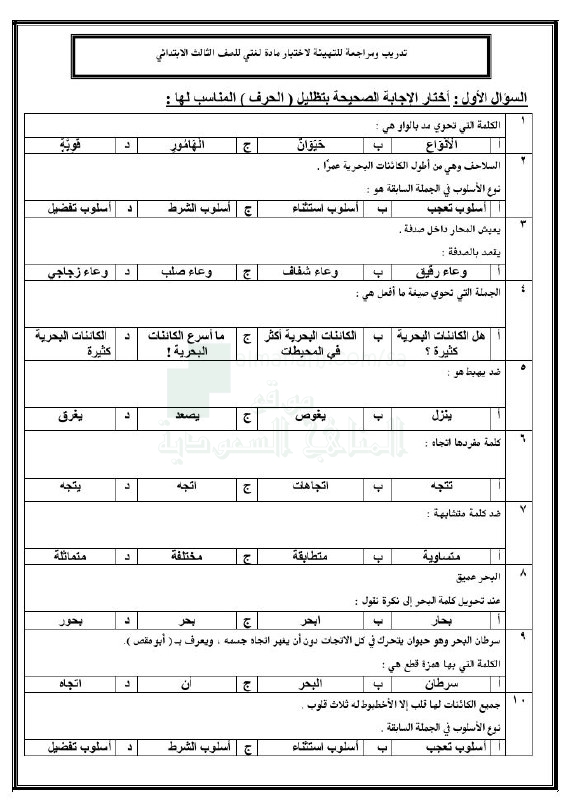 تدريب ومراجعة للتهيئة لاختبار مادة لغتي للصف الثالث الابتدائي
السؤال الأول : أختار الإجابة الصحيحة بتظليل ( الحرف ) المناسب لها :
١ الكلمة التي تحوي مد بالواو هي :
أ الْأَنْوَاعِ ب حَيَوَانٌ ج الْهَامُورِ د قَوِيَّةٍ
٢ السلاحف وهي من أطول الكائنات البحرية عمرًا .
نوع الأسلوب في الجملة السابقة هو :
أ أسلوب تعجب ب أسلوب استثناء ج أسلوب الشرط د أسلوب تفضيل
٣ يعيش المحار داخل صدفة .
يقصد بالصدفة :
أ وعاء رقيق ب وعاء شفاف ج وعاء صلب د وعاء زجاجي
٤ الجملة التي تحوي صيغة ما أفعل هي :
أ هل الكائنات البحرية كثيرة ؟ ب الكائنات البحرية أكثر في المحيطات ج ما أسرع الكائنات البحرية ! د الكائنات البحرية كثيرة
٥ ضد يهبط هو :
أ ينزل ب يغوص ج يصعد د يغرق
موقع
المناهج السعودية
almanahj.com/sa
٦ كلمة مفردها اتجاه :
أ تتجه ب اتجاهات ج اتجه د يتجه
٧ ضد كلمة متشابهة :
أ متساوية ب متطابقة ج مختلفة د متماثلة
٨ البحر عميق
عند تحويل كلمة البحر إلى نكرة نقول :
أ بحار ب ابحر ج بحر د بحور
٩ سرطان البحر وهو حيوان يتحرك في كل الاتجات دون أن يغير اتجاه جسمه ، ويعرف بـ ( أبو مقص ).
الكلمة التي بها همزة قطع هي :
أ سرطان ب البحر ج أن د اتجاه
١٠ جميع الكائنات لها قلب إلا الأخطبوط له ثلاث قلوب .
نوع الأسلوب في الجملة السابقة .
أ أسلوب تعجب ب أسلوب استثناء ج أسلوب الشرط د أسلوب تفضيل